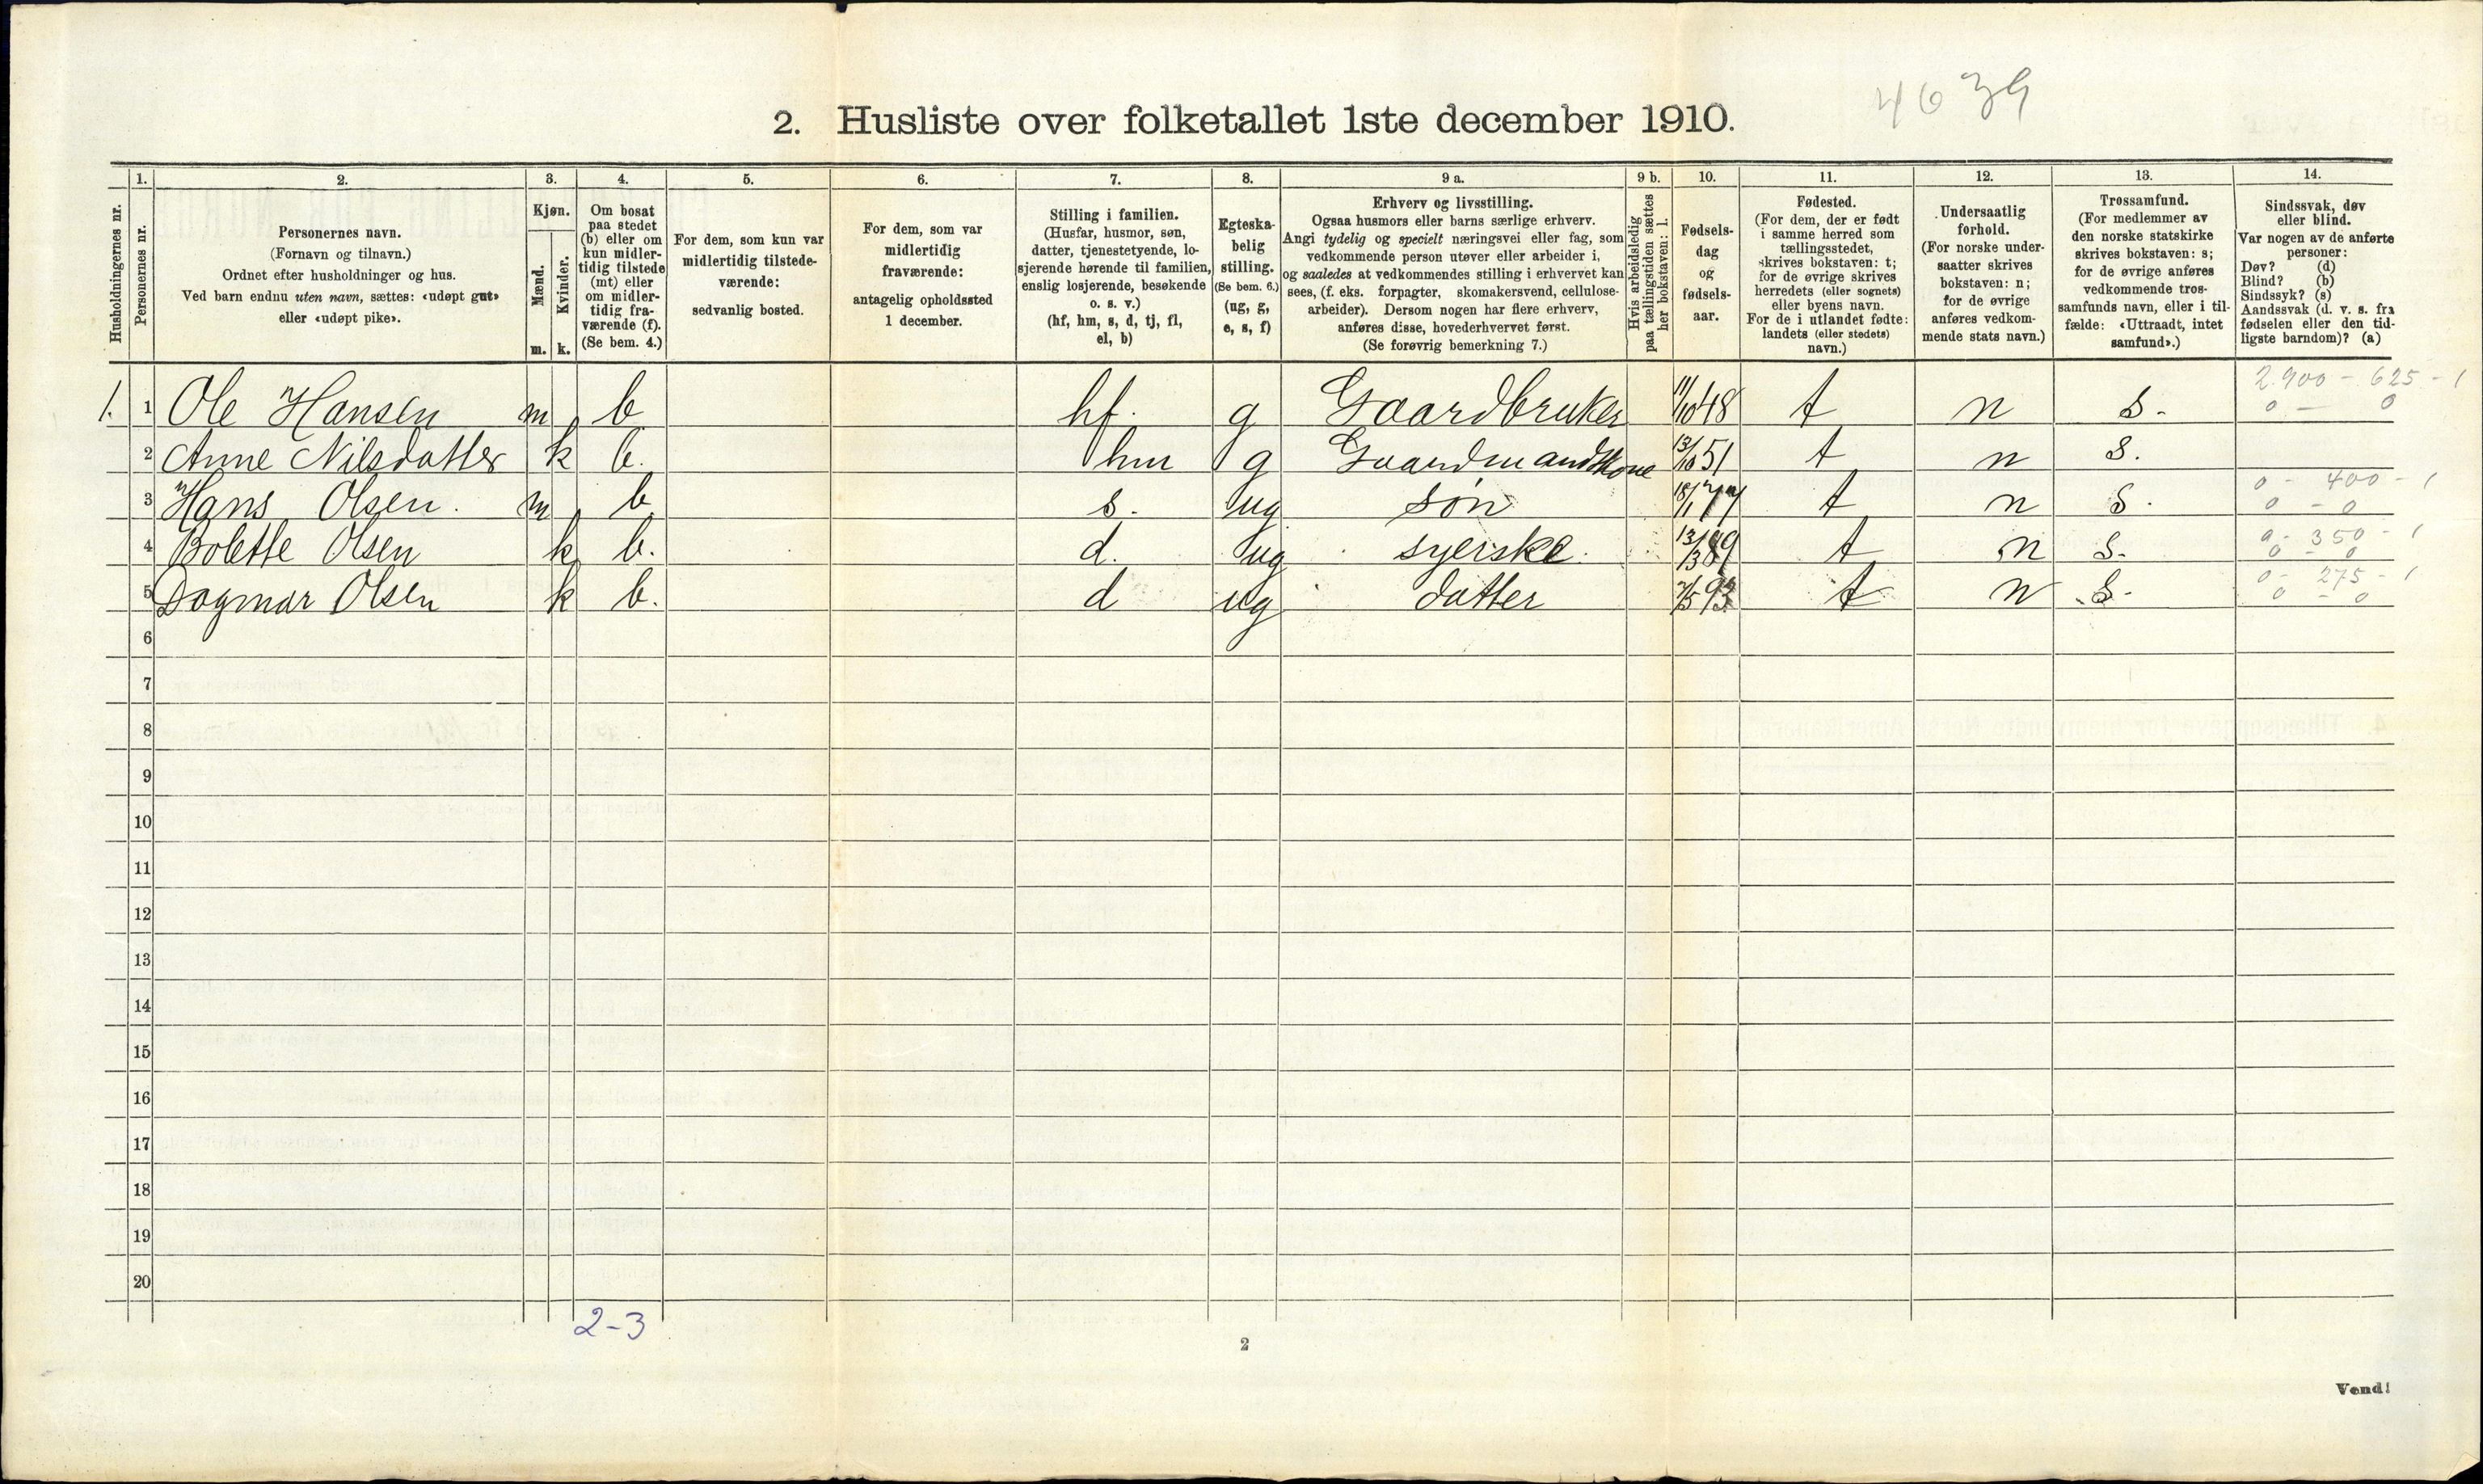 4639
2. Husliste over folketallet 1ste december 1910.
Husholdningernes nr.
1.
Personernes nr.
2.
Personernes navn.
(Fornavn og tilnavn.)
Ordnet efter husholdninger og hus.
Ved barn endnu uten navn, sættes: «udøpt gut»
eller «udøpt pike».
3.
Kjøn.
Mænd.
Kvinder.
m. k.
4.
Om bosat
paa stedet
(b) eller om
kun midler-
tidig tilstede
(mt) eller
om midler-
tidig fra-
værende (f).
(Se bem. 4.)
5.
For dem, som kun var
midlertidig tilstede-
værende:
sedvanlig bosted.
6.
For dem, som var
midlertidig
fraværende:
antagelig opholdssted
1 december.
7.
Stilling i familien.
(Husfar, husmor, søn,
datter, tjenestetyende, lo-
sjerende hørende til familien,
enslig losjerende, besøkende
o. s. v.)
(hf, hm, s, d, tj, fl,
el, b)
8.
Egteska-
belig
stilling.
(Se bem. 6.)
(ug, g,
e, s, f)
9 a.
Erhverv og livsstilling.
Ogsaa husmors eller barns særlige erhverv.
Angi tydelig og specielt næringsvei eller fag, som
vedkommende person utøver eller arbeider i,
og saaledes at vedkommendes stilling i erhvervet kan
sees, (f. eks. forpagter, skomakersvend, cellulose-
arbeider). Dersom nogen har flere erhverv,
anføres disse, hovederhvervet først.
(Se forøvrig bemerkning 7.)
9 b.
Hvis arbeidsledig
paa tællingstiden sættes
her bokstaven: l.
10.
Fødsels-
dag
og
fødsels-
aar.
11.
Fødested.
(For dem, der er født
i samme herred som
tællingsstedet,
skrives bokstaven: t;
for de øvrige skrives
herredets (eller sognets)
eller byens navn.
For de i utlandet fødte:
landets (eller stedets)
navn.)
12.
Undersaatlig
forhold.
(For norske under-
saatter skrives
bokstaven: n;
for de øvrige
anføres vedkom-
mende stats navn.)
13.
Trossamfund.
(For medlemmer av
den norske statskirke
skrives bokstaven: s;
for de øvrige anføres
vedkommende tros-
samfunds navn, eller i til-
fælde: «Uttraadt, intet
samfund».)
14.
Sindssvak, døv
eller blind.
Var nogen av de anførte
personer:
Døv? (d)
Blind? (b)
Sindssyk? (s)
Aandssvak (d. v. s. fra
fødselen eller den tid-
ligste barndom)? (a)
1. 1 Ole Hansen m b hf. g Gaardbruker 11/10 48 t n s. 2.900 - 625 - 1
0 - 0
2 Anne Nilsdatter k b. hm g Gaardmandskone 13/10 51 t n s.
3 Hans Olsen. m b s. ug søn 18/1 77 t n s. 0 - 400 - 1
0 - 0
4 Bolette Olsen k b. d. ug syerske. 13/3 89 t n s. 0 - 350 - 1
0 - 0
5 Dagmar Olsen k b. d ug datter 93 t n s. 0 - 275 - 1
0 - 0
6
7
8
9
10
11
12
13
14
15
16
17
18
19
20
2-3
2
Vend!